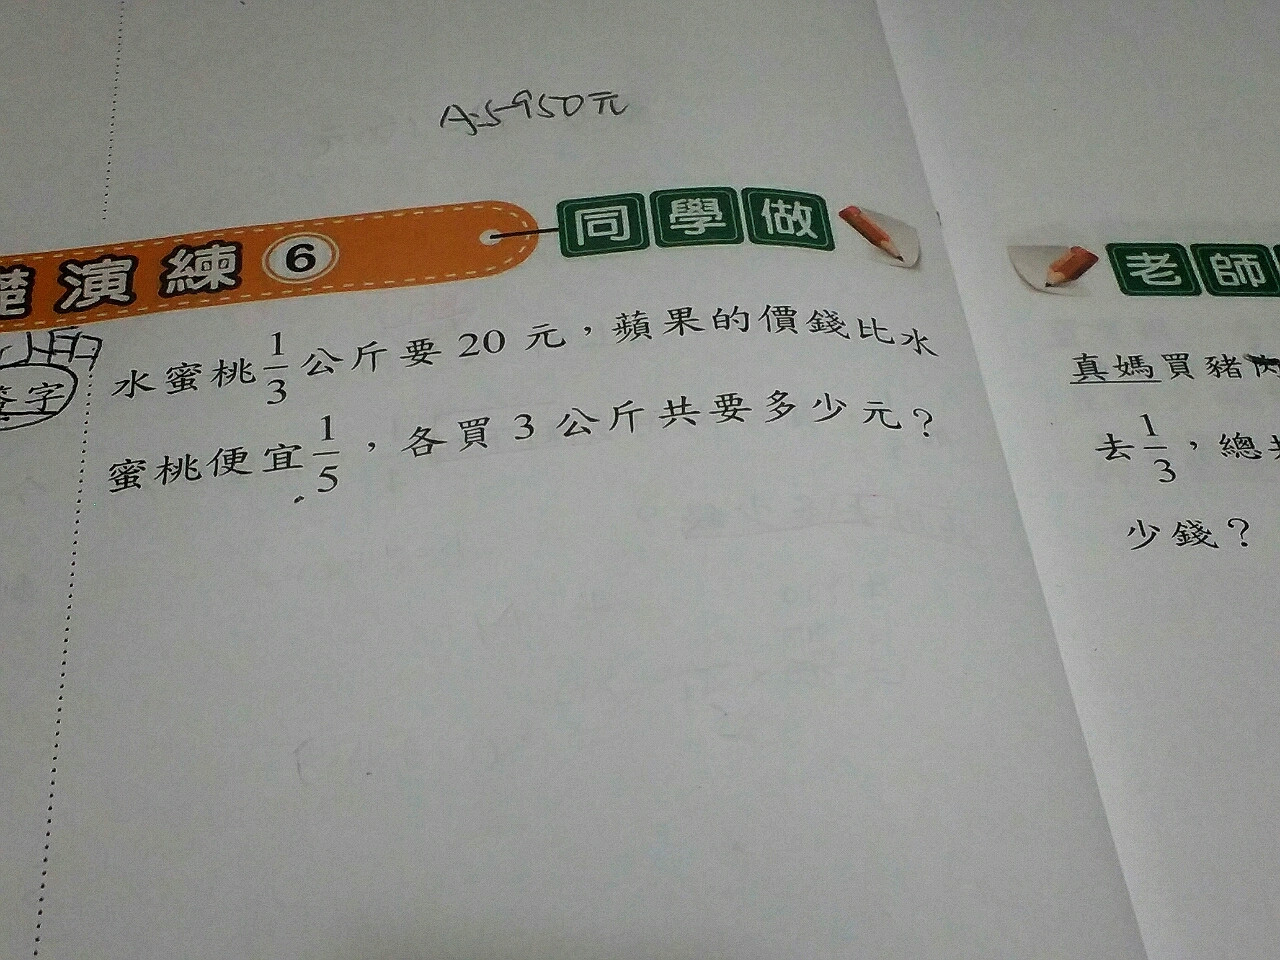 A:5950元
礎演練6 同學做
水蜜桃1/3公斤要20元，蘋果的價錢比水
蜜桃便宜1/5，各買3公斤共要多少元？
簽字
老師
真媽買豬肉
去1/3，總共
少錢？